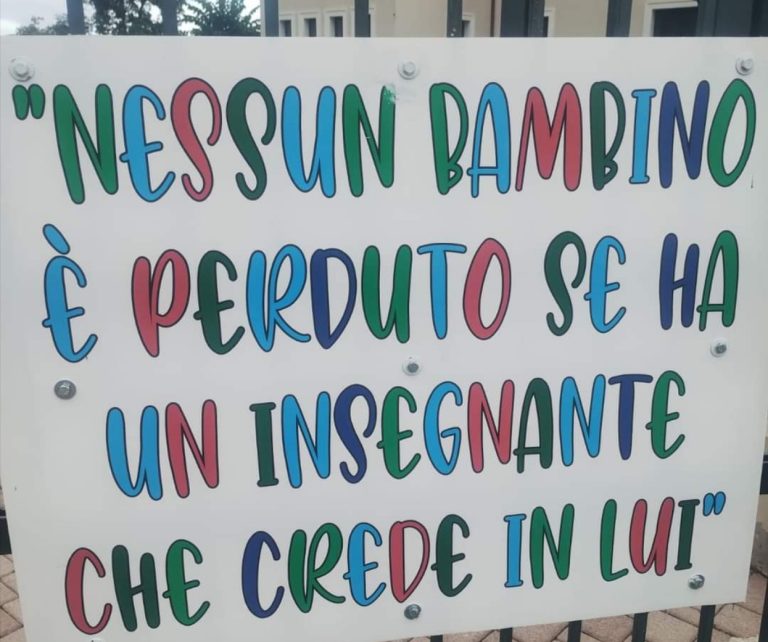 "NESSUN BAMBINO
È PERDUTO SE HA
UN INSEGNANTE
CHE CREDE IN LUI"